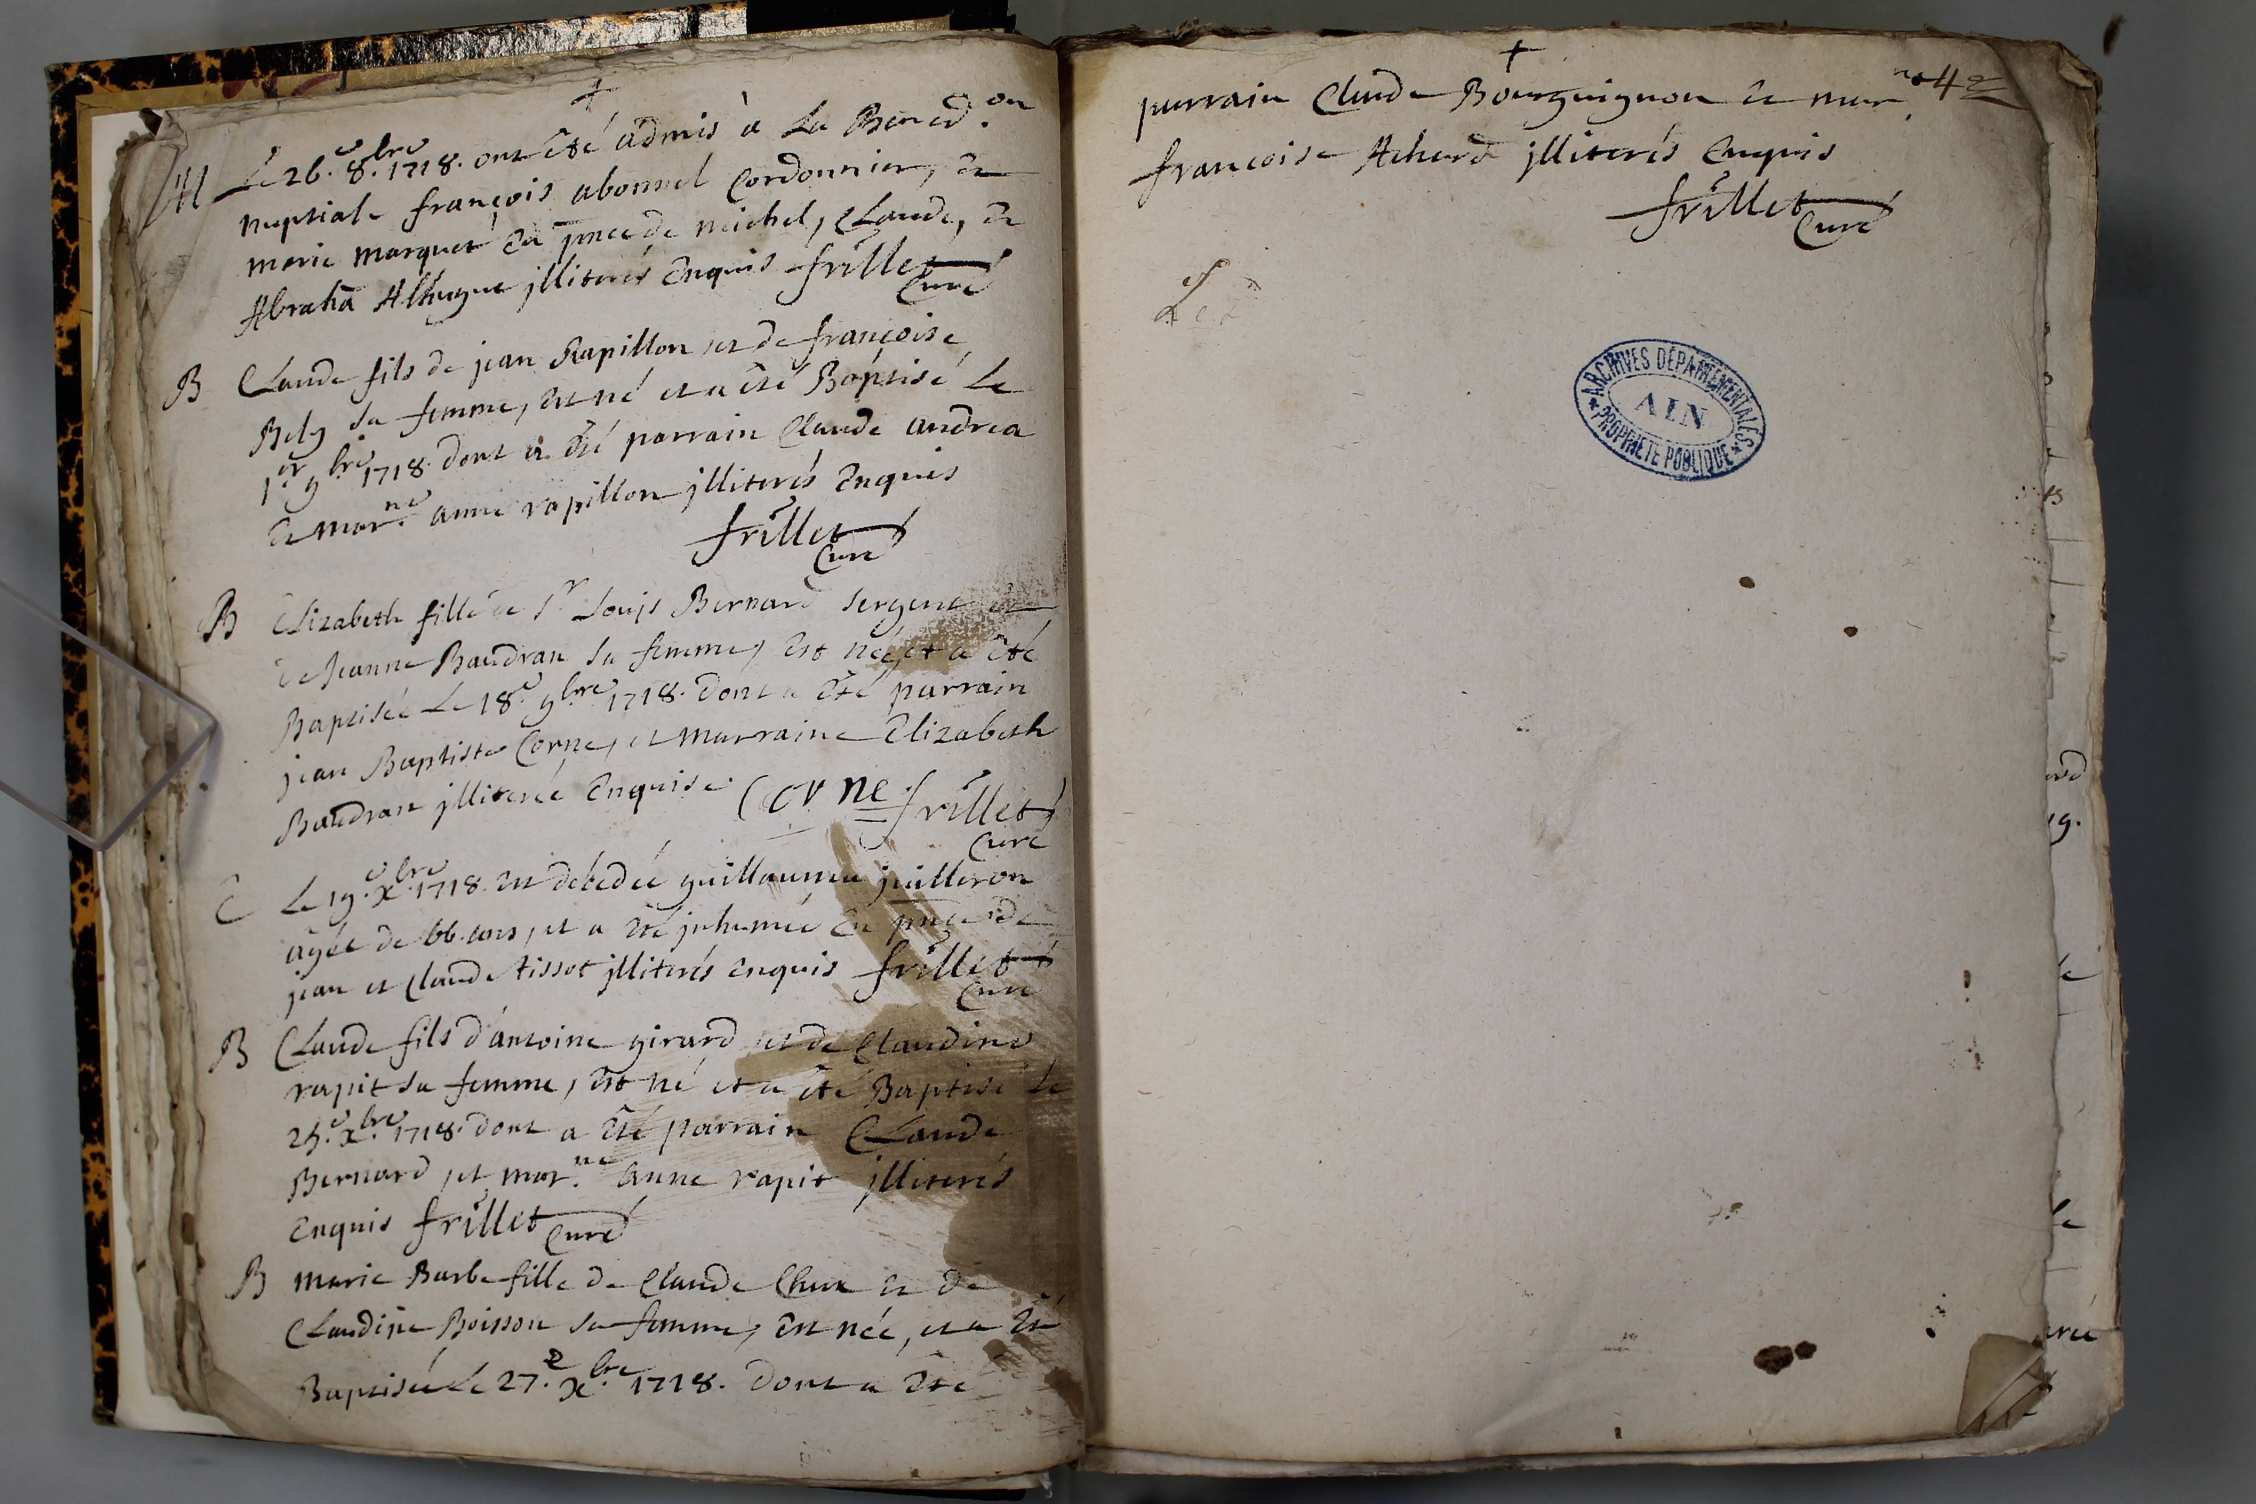 +
M Le 26.e 8.bre 1718. ont été admis à La Bened.on
nuptiale françois abonnel Cordonnier, et
marie marquet en pnce de michel, Claude, et
Abrahã illiterés Enquis frillet
Curé
B Claude fils de jean Rapillon et de françoise
Bely sa femme, est né et a été Baptisé Le
1.er 9.bre 1718. dont a été parrain Claude andrea
et mar.ne anne rapillon illiterés Enquis
frillet
Curé
B Elizabeth fille de Sr Louis Bernard sergent et
de Jeanne Baudran sa femme, est née, et a été
Baptisée Le 18.e 9.bre 1718. dont a été parrain
jean Baptiste Corne, et marraine Elizabeth
Baudran illiterée Enquise. Corne frillet
Curé
E Le 19.e x.bre 1718. est décedée guillauma juilleron
agée de 66. ans, et a été inhumée En pnce de
jean et Claude tissot illiterés enquis frillet
Curé
B Claude fils d'antoine girard et de Claudine
rapit sa femme, est né et a été Baptisé le
25.e x.bre 1718. dont a été parrain Claude
Bernard, et mar.ne anne rapit illiterés
Enquis frillet Curé
B marie Barbe fille de Claude Chux et de
Claudine Boisson sa femme, est née, et a été
Baptisée Le 27.e x.bre 1718. dont a été
+
42
parrain Claude Bourguignon et mar.ne
françoise Achard illiterés Enquis
frillet
Curé
ARCHIVES DÉPARTEMENTALES
AIN
PROPRIÉTÉ PUBLIQUE